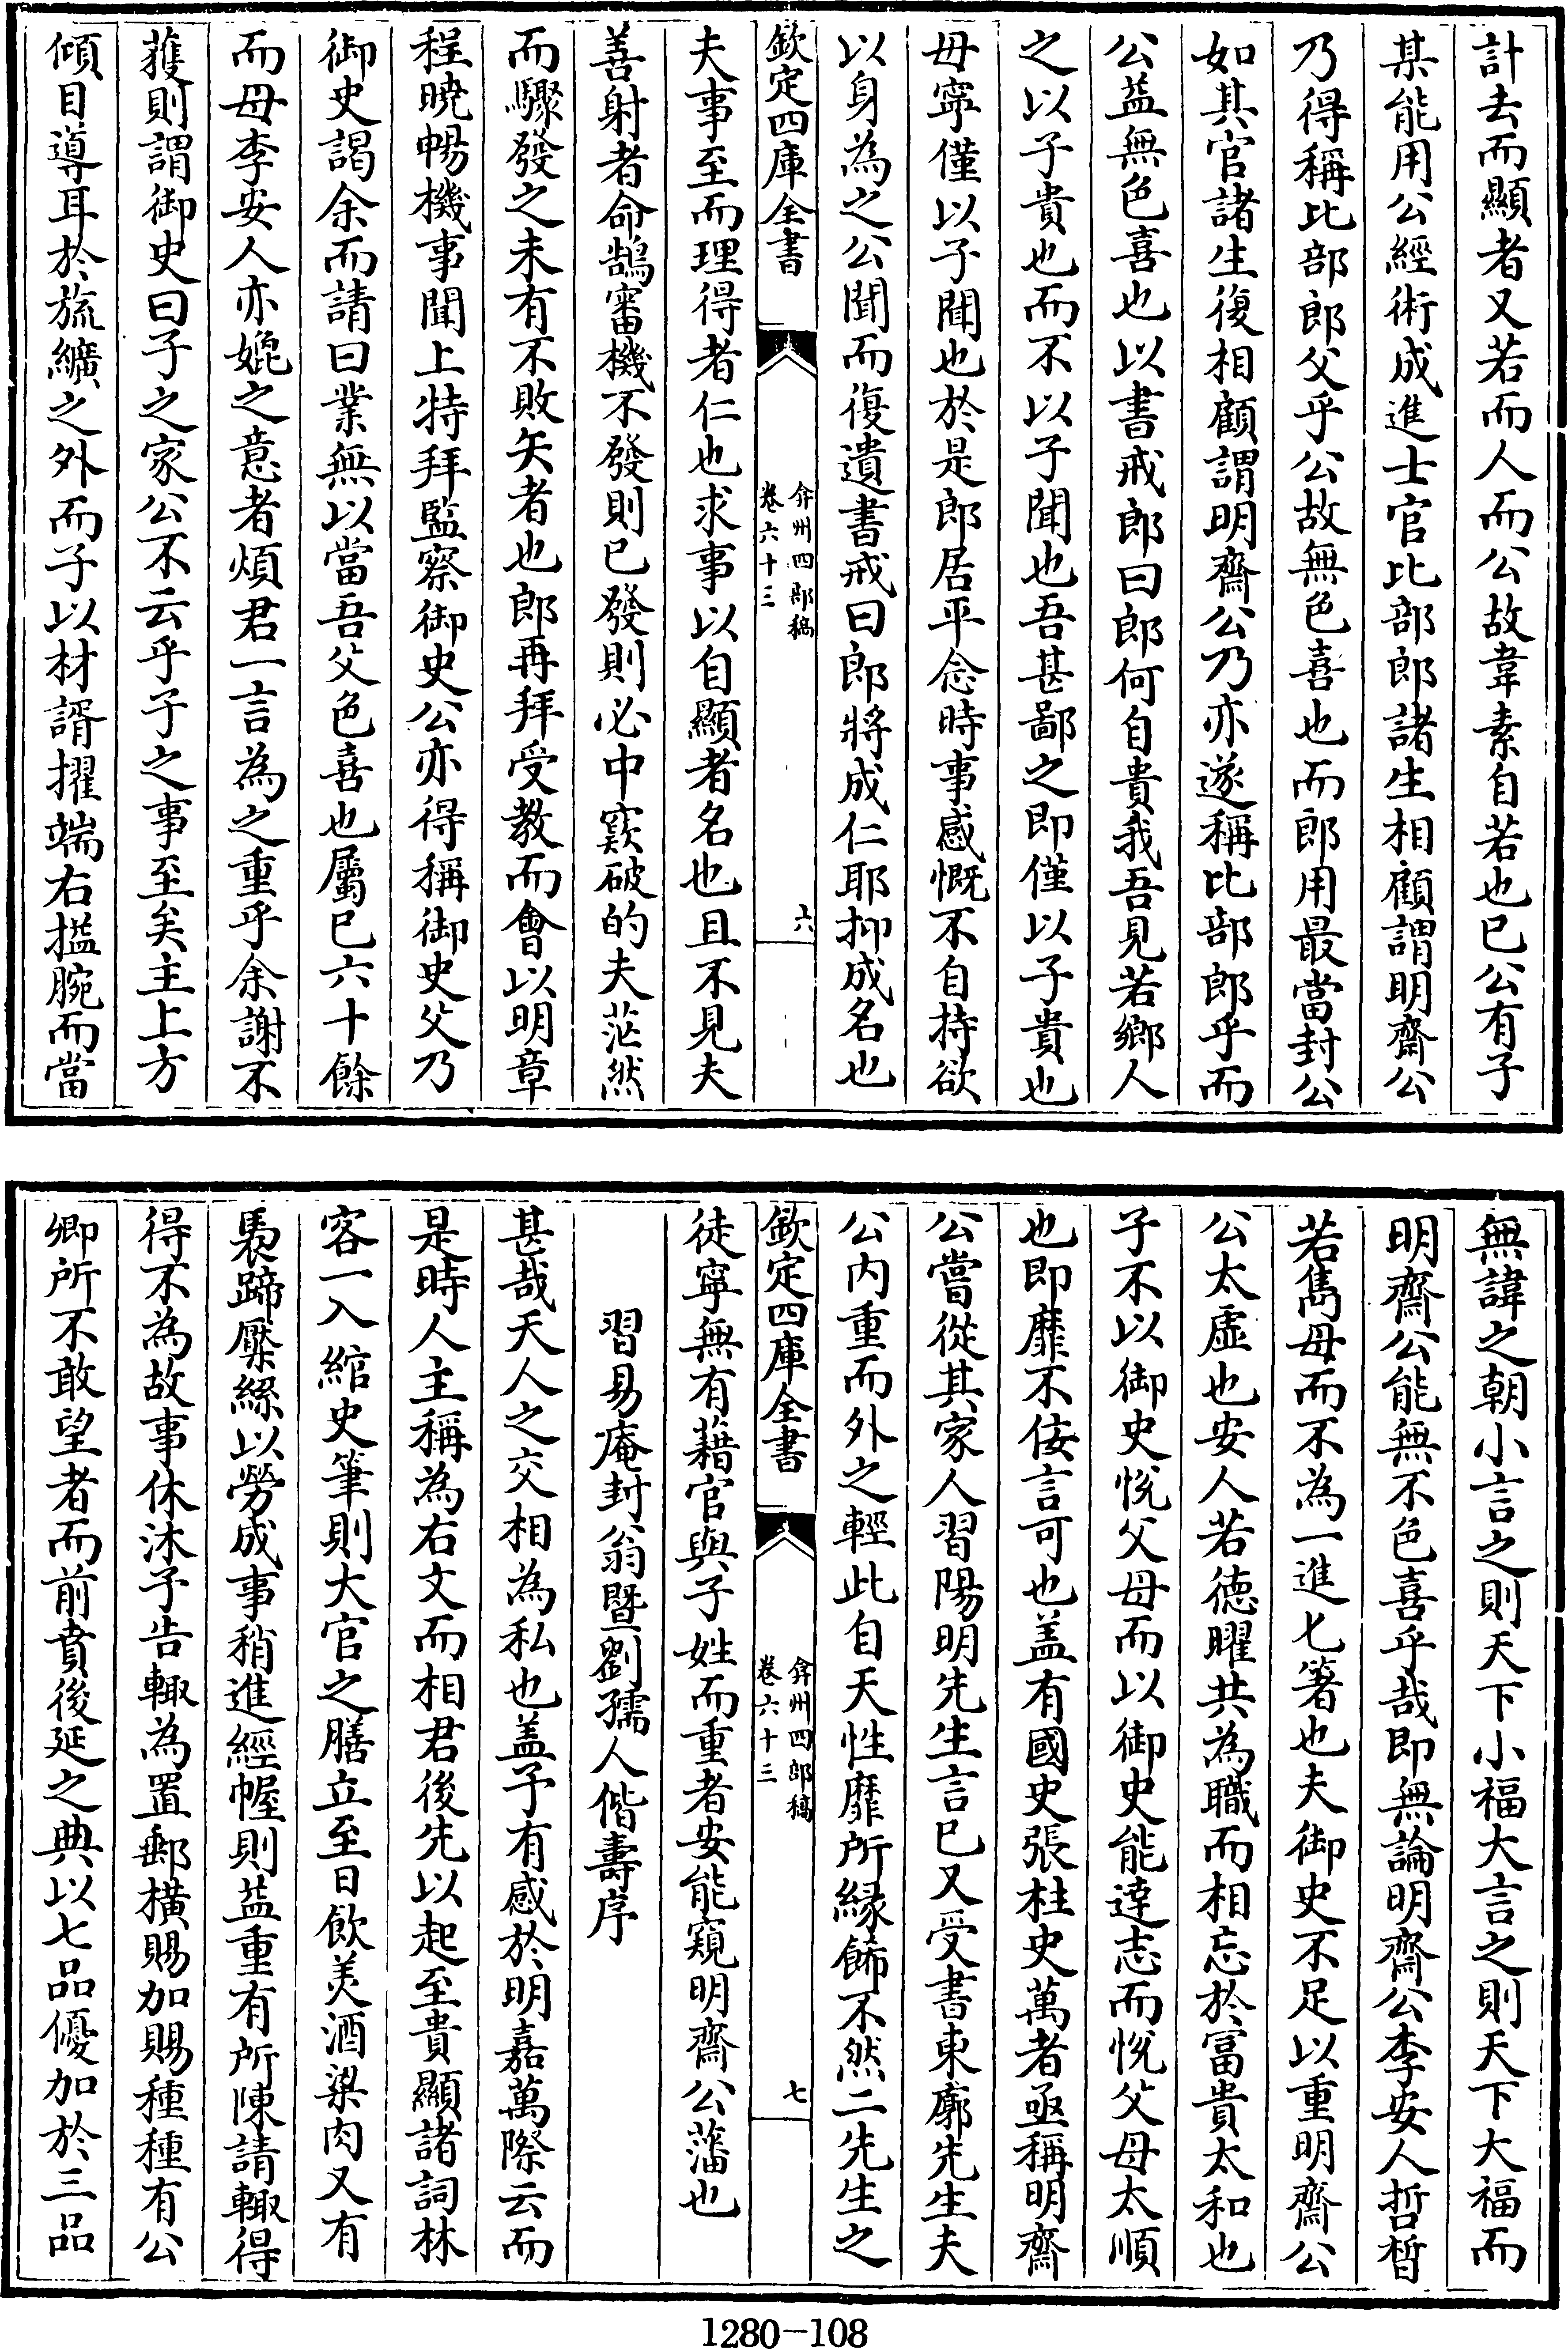 計去而顯者又若而人而公故韋素自若也已公有子
某能用公經術成進士官比部郎諸生相顧謂明齋公
乃得稱比部郎父乎公故無色喜也而郎用最當封公
如其官諸生復相顧謂明齋公乃亦遂稱比部郎乎而
公益無色喜也以書戒郎曰郎何自貴我吾見若鄉人
之以子貴也而不以子聞也吾甚鄙之即僅以子貴也
毋寧僅以子聞也於是郎居平念時事感慨不自持欲
以身為之公聞而復遺書戒曰郎將成仁耶抑成名也
欽定四庫全書
弇州四部稿
卷六十三
六
夫事至而理得者仁也求事以自顯者名也且不見夫
善射者命鵠審機不發則已發則必中窾破的夫茫然
而驟發之未有不敗矢者也郎再拜受教而會以明章
程曉暢機事聞上特拜監察御史公亦得稱御史父乃
御史謁余而請曰業無以當吾父色喜也屬已六十餘
而母李安人亦媲之意者煩君一言為之重乎余謝不
獲則謂御史曰子之家公不云乎子之事至矣主上方
傾目導耳於旒纊之外而子以材諝擢端右搤腕而當
無諱之朝小言之則天下小福大言之則天下大福而
明齋公能無不色喜乎哉即無論明齋公李安人哲皙
若雋母而不為一進匕箸也夫御史不足以重明齋公
公太虛也安人若德曜共為職而相忘於富貴太和也
子不以御史悅父母而以御史能達志而悅父母太順
也即靡不佞言可也盖有國史張柱史萬者亟稱明齋
公嘗從其家人習陽明先生言已又受書東廓先生夫
公內重而外之輕此自天性靡所緣飾不然二先生之
欽定四庫全書
弇州四部稿
卷六十三
七
徒寧無有藉官與子姓而重者安能窺明齋公藩也
習易庵封翁暨劉孺人偕壽序
甚哉天人之交相為私也盖予有感於明嘉萬際云而
是時人主稱為右文而相君後先以起至貴顯諸詞林
客一入綰史筆則大官之膳立至日飲羙酒粱肉又有
褭蹄縻絲以勞成事稍進經幄則益重有所陳請輙得
得不為故事休沐予告輙為置郵橫賜加賜種種有公
卿所不敢望者而前賁後延之典以七品優加於三品
1280-108